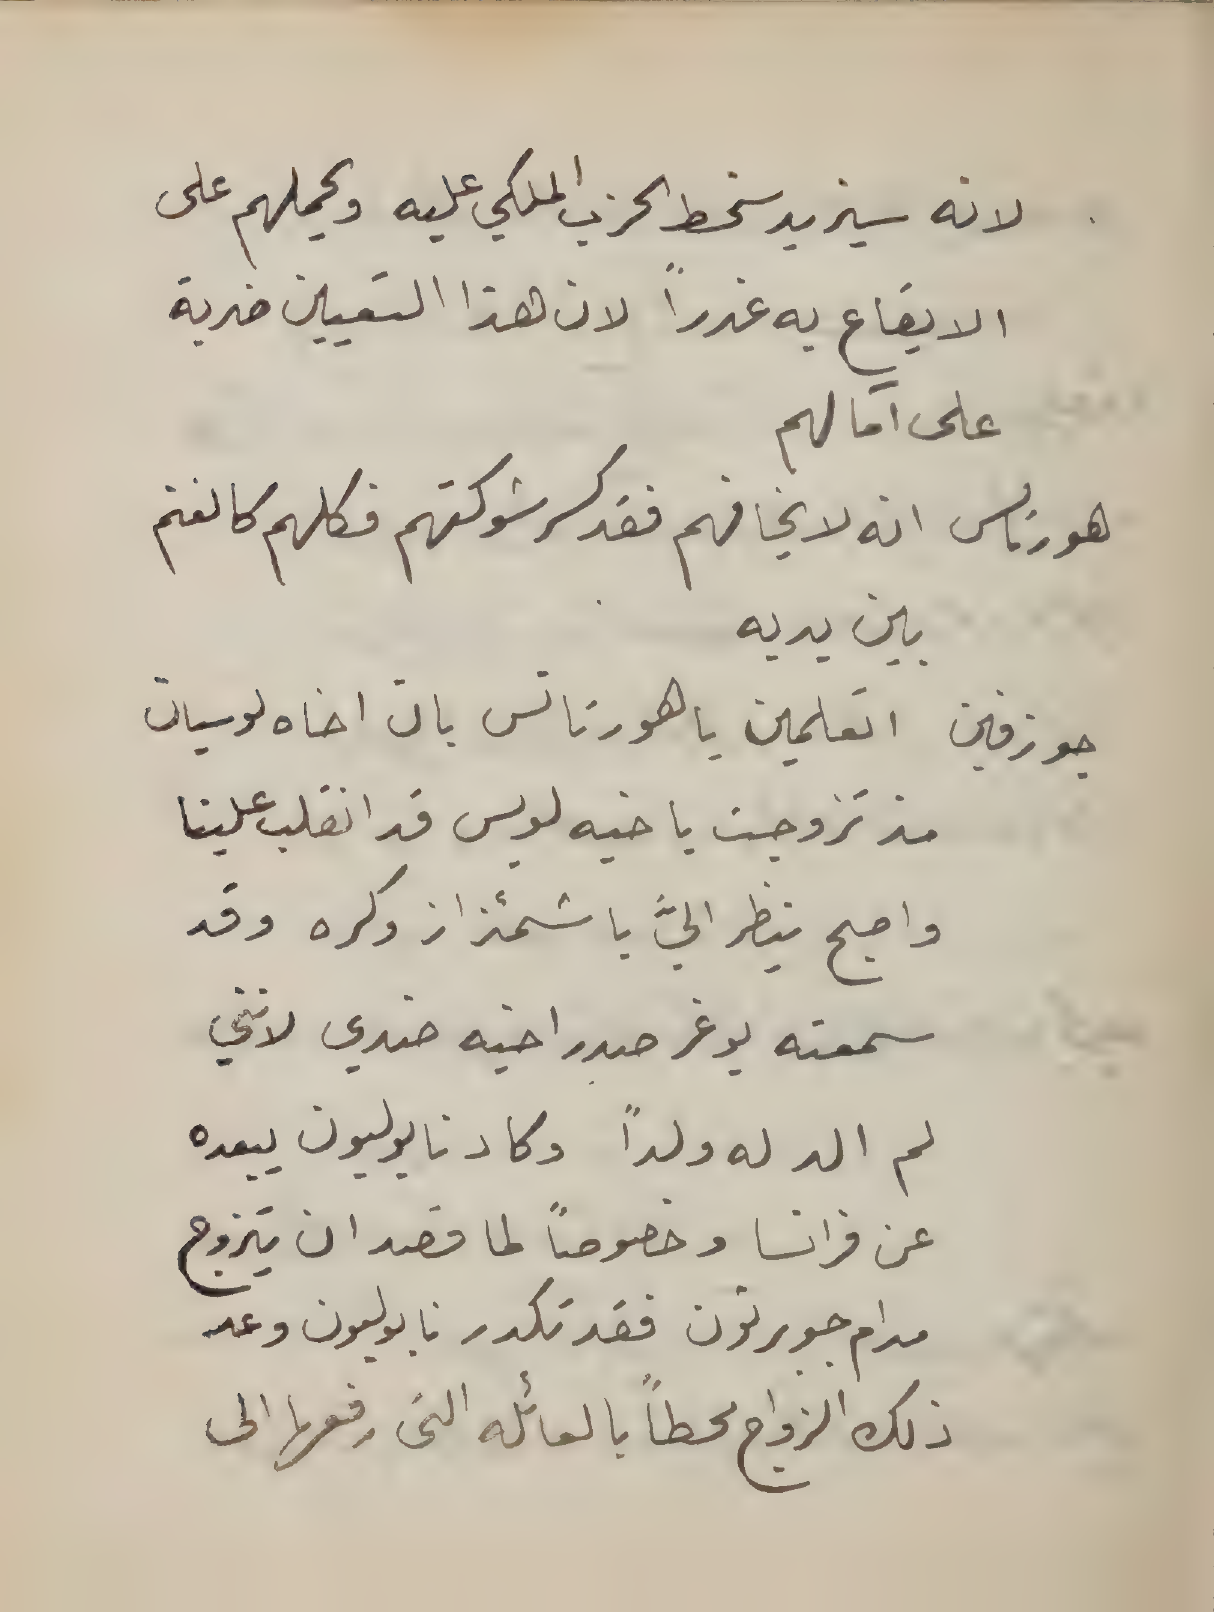 لانه سيزيد سخط الحزب الملكي عليه ويحملهم على
الايقاع به غدراً لان هذا التعيين ضربة
على آمالهم
هورتانس انه لا يخافهم فقد كسر شوكتهم فكلهم كالغنم
بين يديه
جوزفين اتعلمين يا هورتانس بان اخاه لوسيان
مذ تزوجت باخيه لويس قد انقلب علينا
واصبح ينظر اليَّ باشمئزاز وكره وقد
سمعته يوغر صدر اخيه ضدي لانني
لم الد له ولداً وكاد نابوليون يبعده
عن فرانسا وخصوصاً لما قصد ان يتزوج
مدام جوبرتون فقد تكدر نابوليون وعد
ذلك الزواج محطاً بالعائله التي رفعها الى